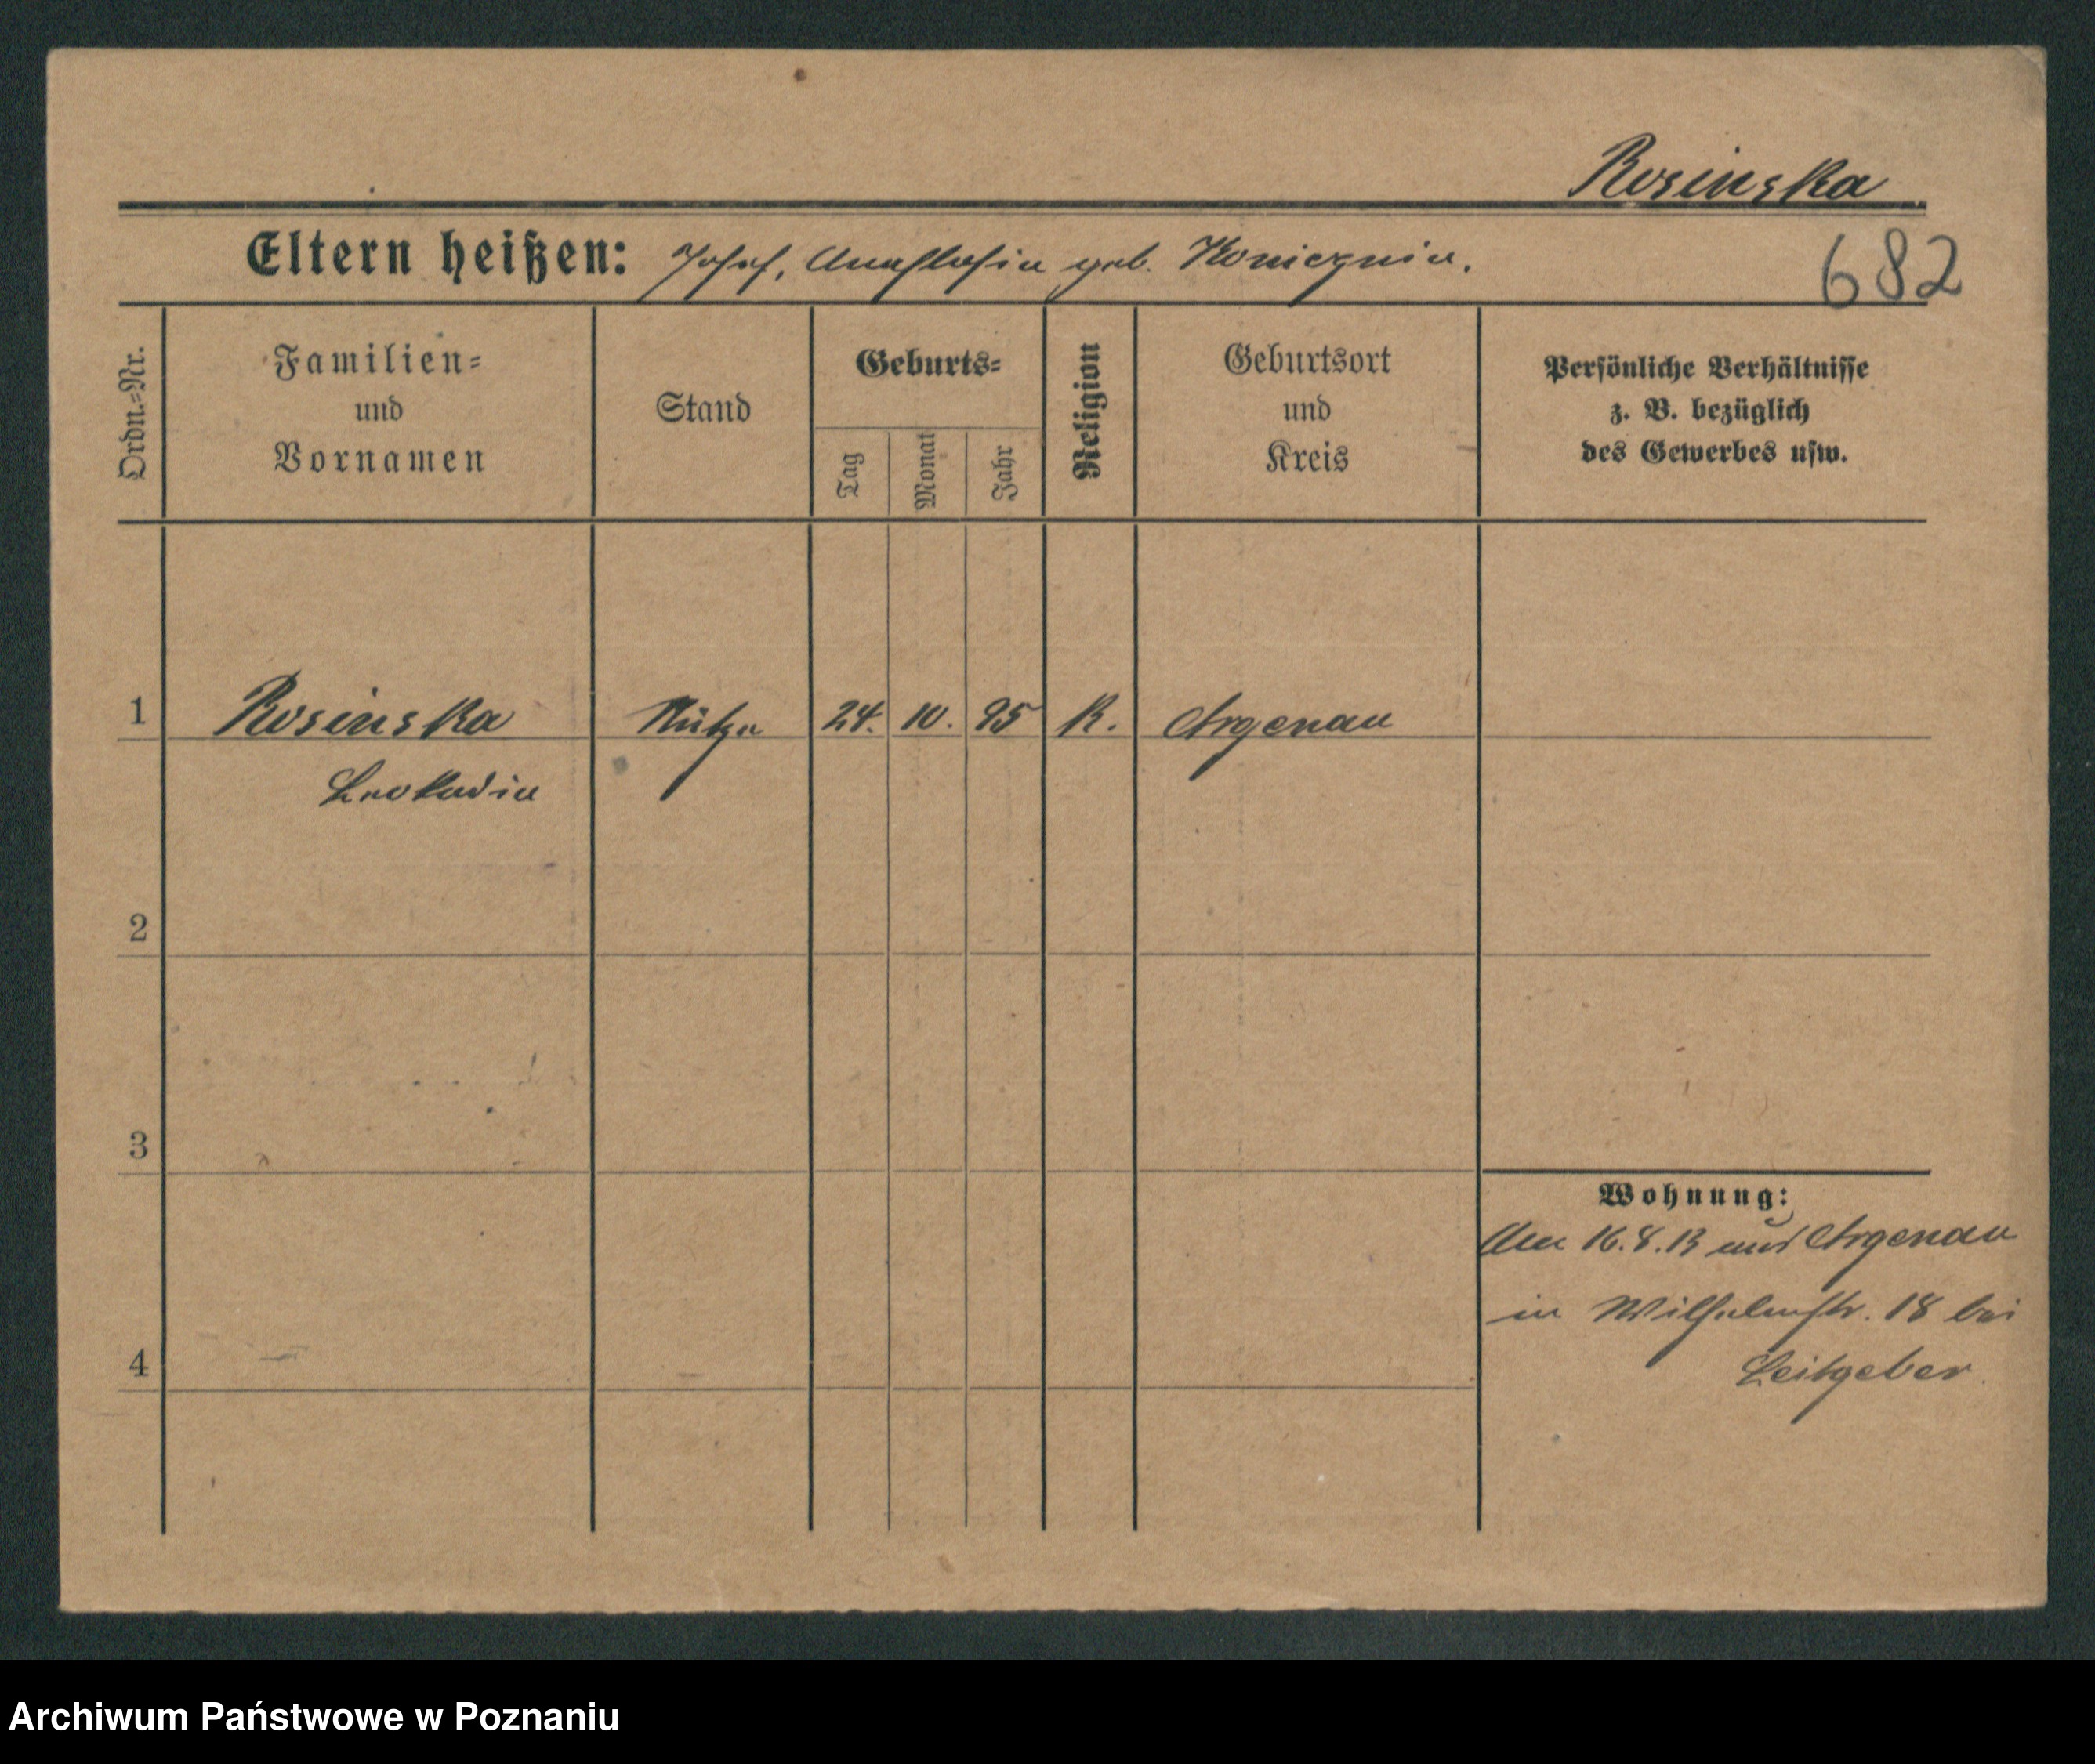 Rosinska
Eltern heißen: Josef, Anastasia geb.
682
Ordn.=Nr.
Familien=
und
Vornamen
Stand
Geburts=
Tag
Monat
Jahr
Religion
Geburtsort
und
Kreis
Persönliche Verhältnisse
z. B. bezüglich
des Gewerbes usw.
1 Rosinska 24. 10. 95 K. Argenau
Leokadia
2
3
4
Wohnung:
Am 16.8.13 aus Argenau
in Wilhelmstr. 18 bei
Leitgeber.
Archiwum Państwowe w Poznaniu